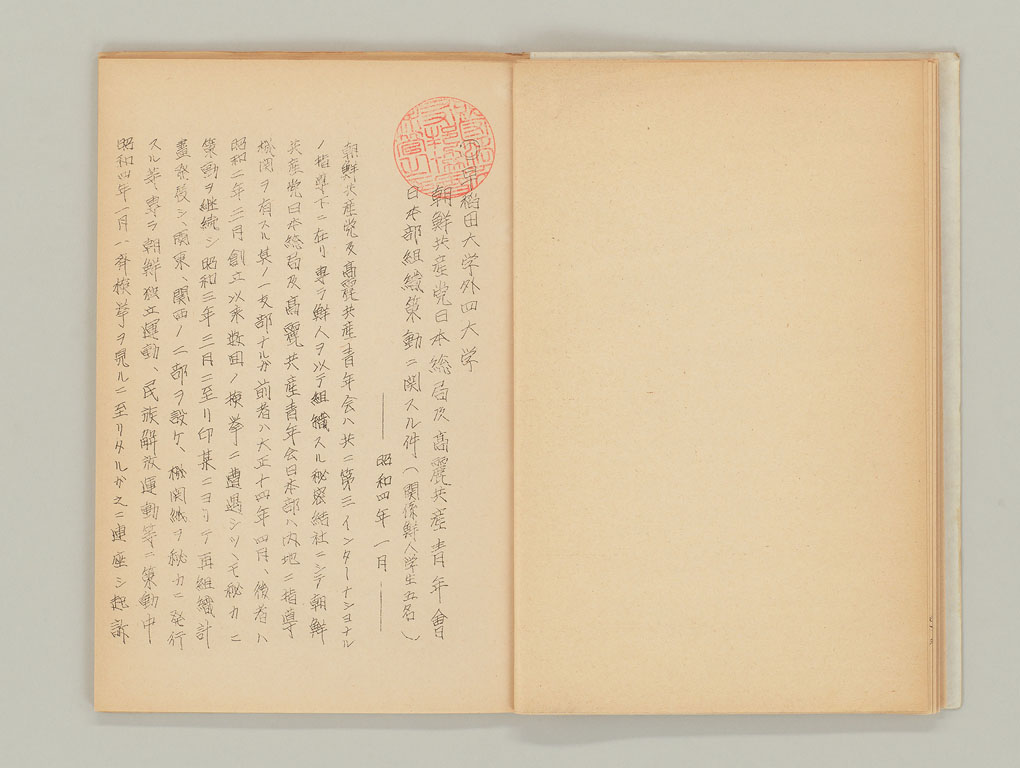 早稲田大学外四大学
朝鮮共産党日本総局及高麗共産青年會
日本部組織策動ニ関スル件(関係鮮人学生五名)
昭和四年一月
朝鮮共産党及高麗共産青年会ハ共ニ第三インターナショナル
ノ指導下ニ在リ専ラ鮮人ヲ以テ組織スル秘密結社ニシテ朝鮮
共産党日本総局及高麗共産青年会日本部ハ内地ニ指導
機関ヲ有スル其ノ一支部ナルガ前者ハ大正十四年四月、後者ハ
昭和二年三月創立以来数回ノ検挙ニ遭遇シツヽモ秘カニ
策動ヲ継続シ昭和三年三月ニ至リ印某ニヨリテ再組織計
畫発展シ、関東、関西ノ二部ヲ設ケ、機関紙ヲ秘カニ発行
スル等専ラ朝鮮独立運動、民族解放運動等ニ策動中
昭和四年一月一斉検挙ヲ見ルニ至リタルガ之ニ連座シ起訴